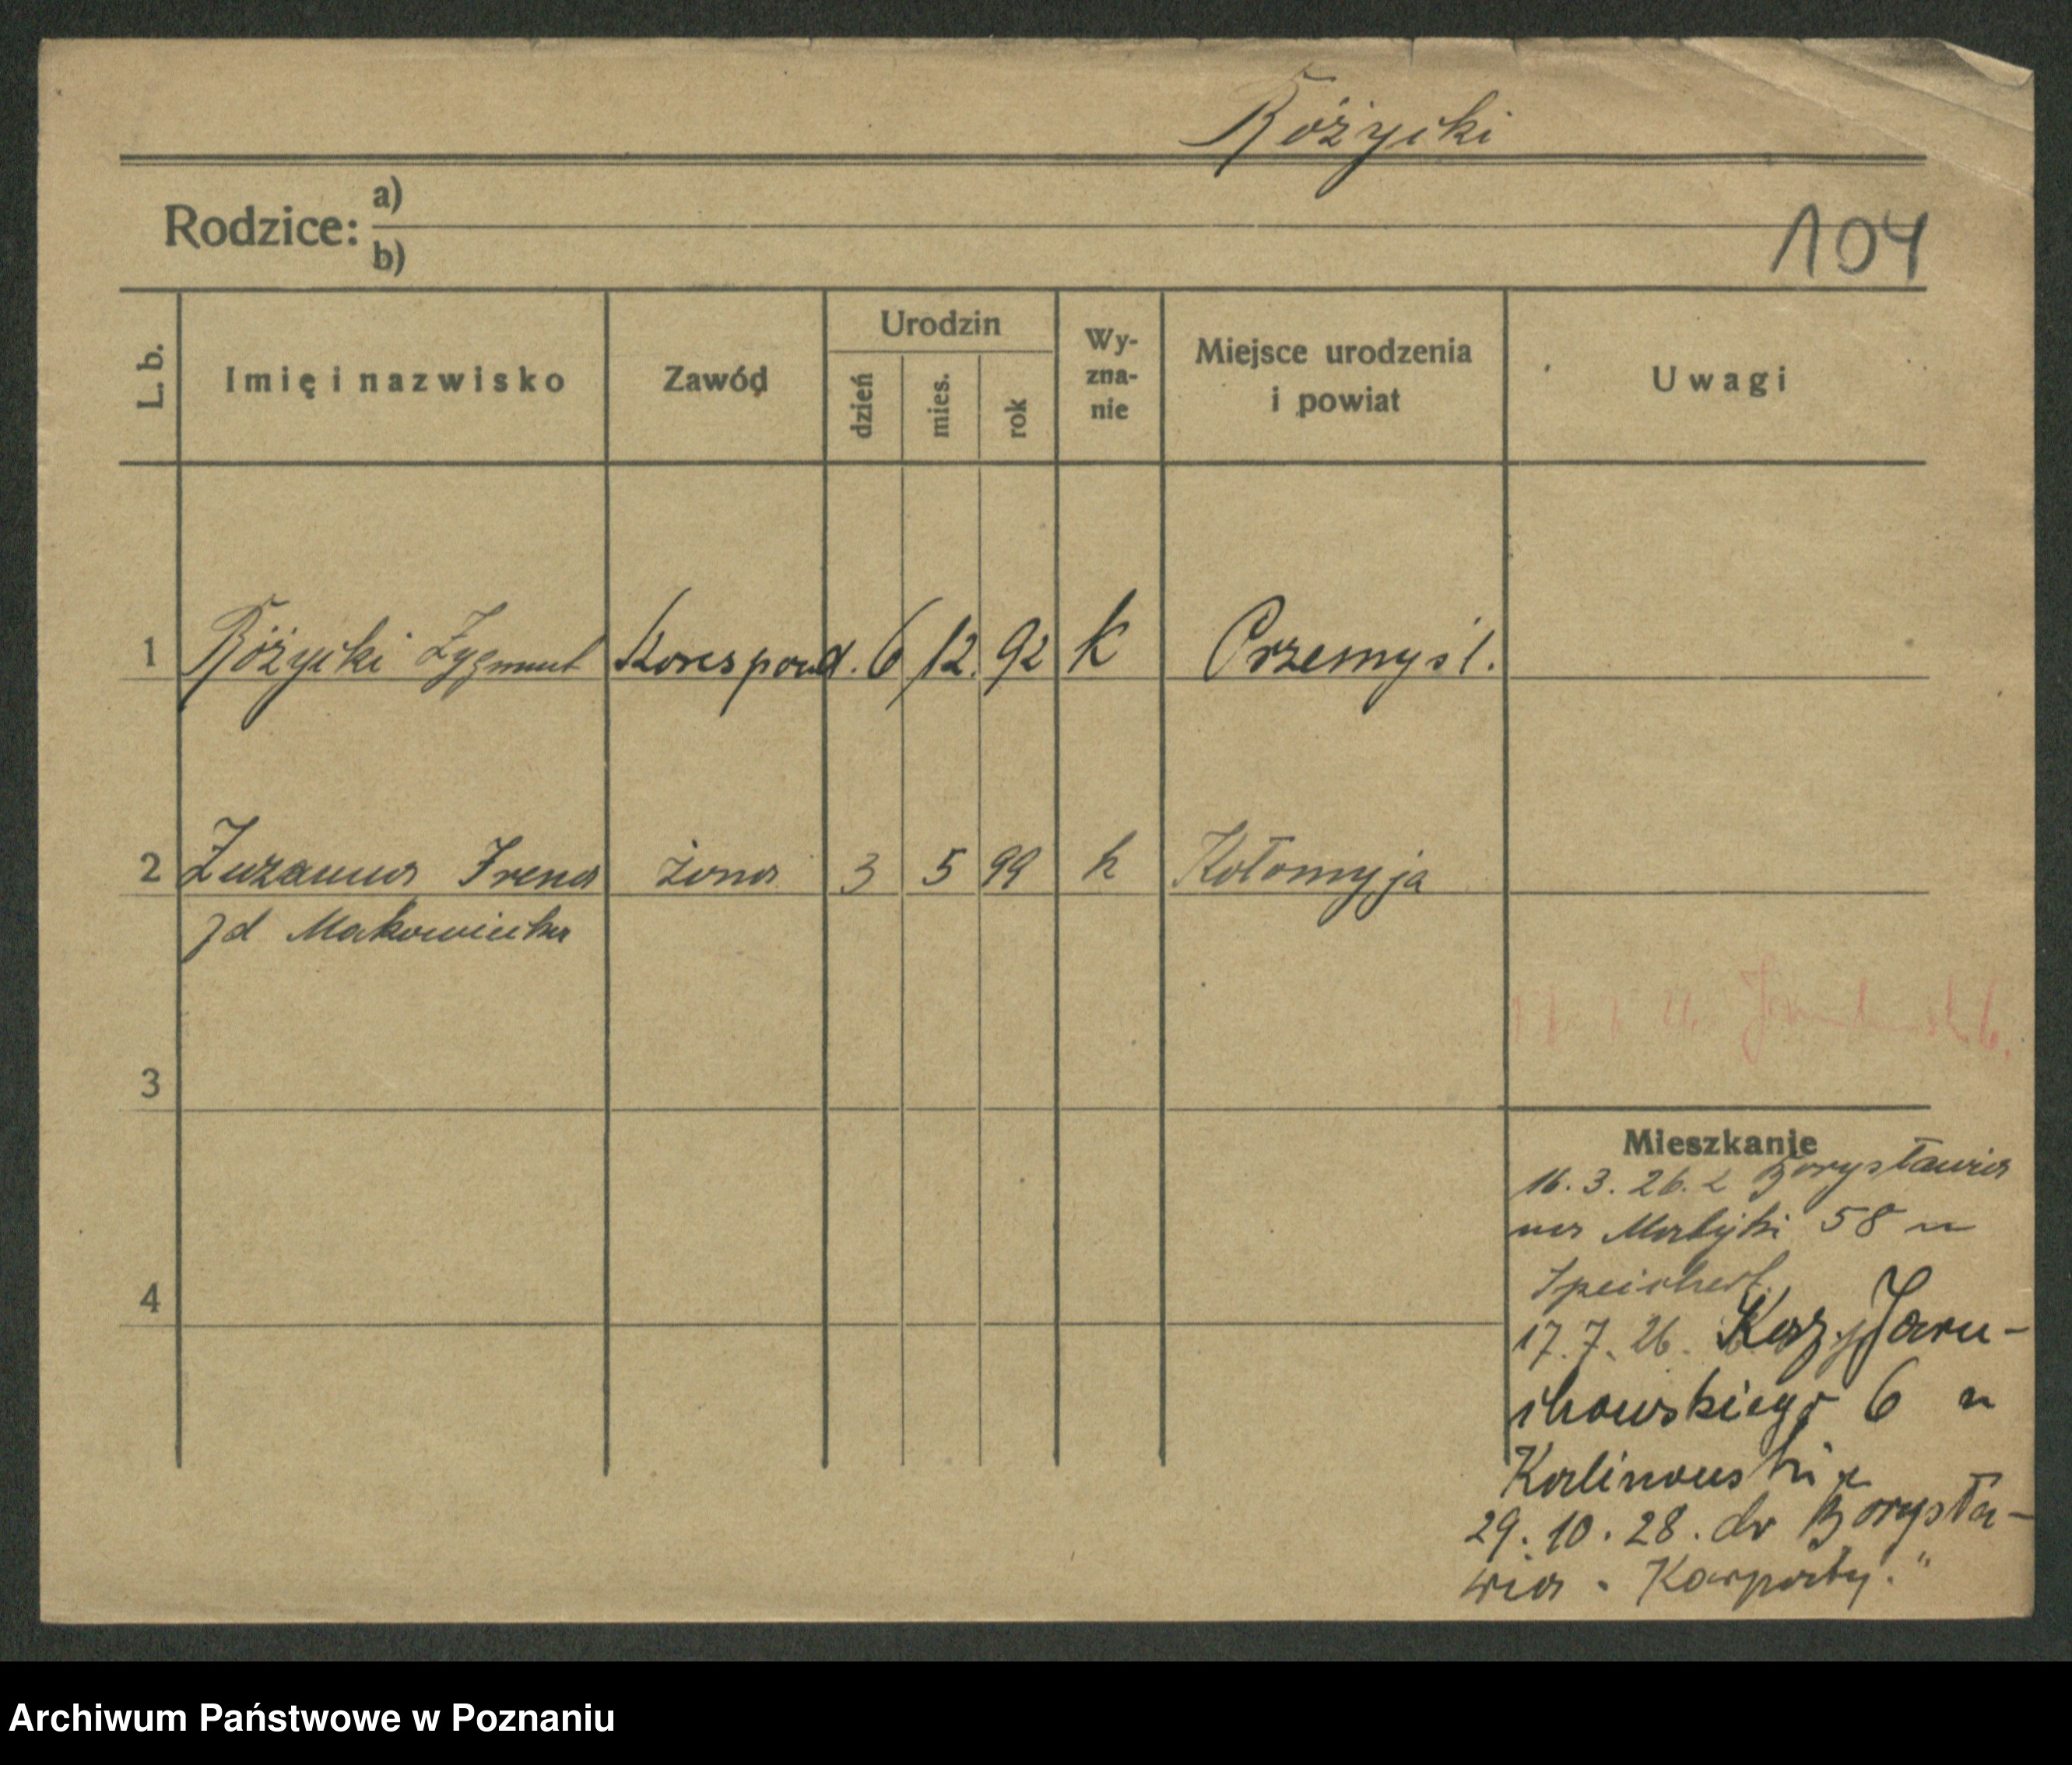 Różycki
Rodzice: a)
b)
104
L. b.
Imię i nazwisko
Zawód
Urodzin
dzień
mies.
rok
Wy-
zna-
nie
Miejsce urodzenia
i powiat
Uwagi
1 Różycki Zygmunt Korespond. 6 12. 92 k Przemyśl.
2 Zuzanna Irena żona 3 5 99 k Kołomyja
zd Makowiecka
3
4
Mieszkanie
16.3.26. z Borysławia
na 58 u
Speichert
17.7.26. Kaz. Jaru-
chowskiego 6 u
Kalinowski
29.10.28. do Borysła-
wia "Karpaty."
Archiwum Państwowe w Poznaniu